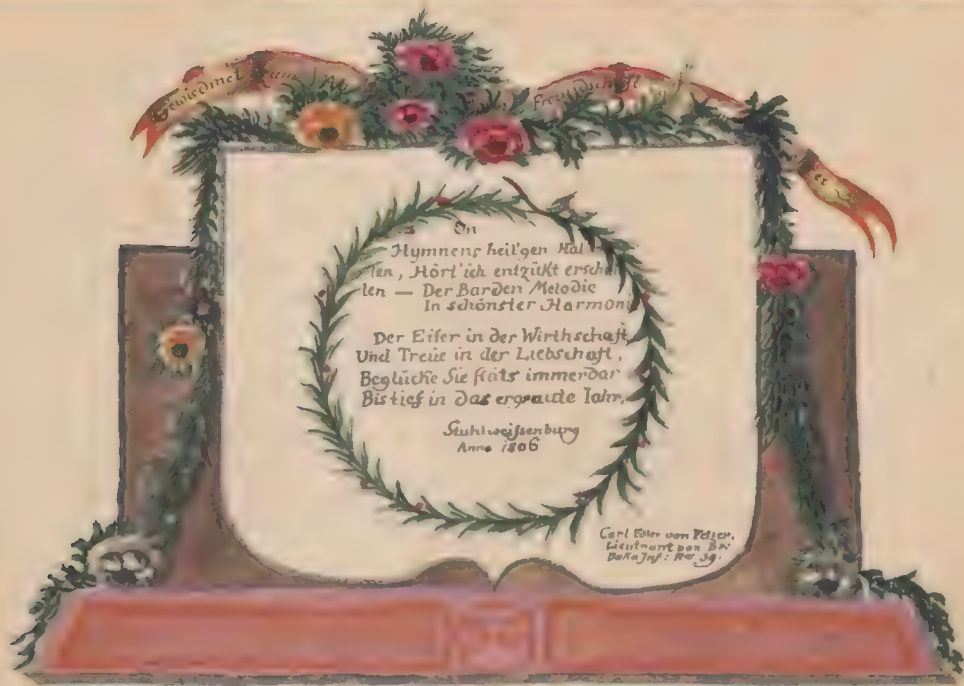 Gewiedmet zum
Freundschaft
In
Hymnens heil'gen Hal
ten, Hört' ich entzükt erschal
len — Der Barden Melodie
In schönster Harmoni
Der Eifer in der Wirthschaft,
Und Treüe in der Liebschaft,
Beglücke Sie stäts immerdar
Bis tief in das ergraute Iahr.
Stuhlweissenburg
Anno 1806
Carl Edler von
Lieutnant von
Duka Inf: Nro 39.